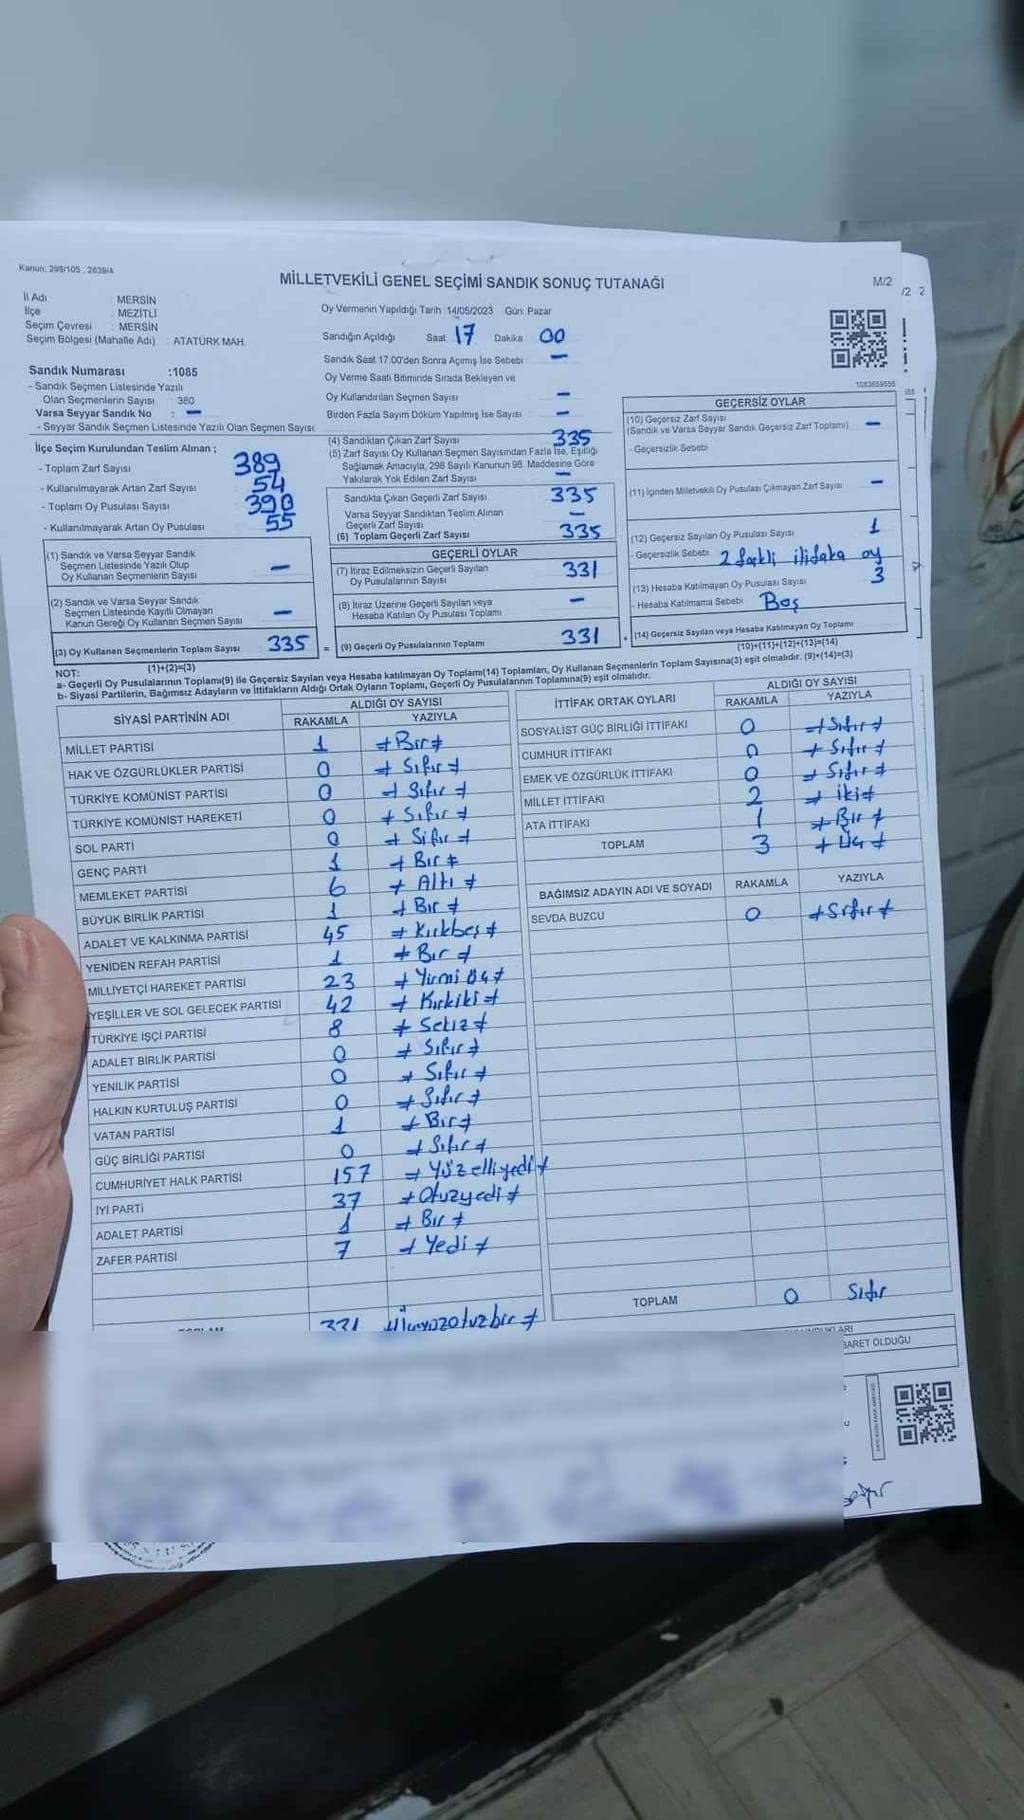 Kanun; 298/105 , 2839/4
MİLLETVEKİLİ GENEL SEÇİMİ SANDIK SONUÇ TUTANAĞI
M/2
/2 2
İl Adı : MERSİN
İlçe : MEZİTLİ
Seçim Çevresi : MERSİN
Seçim Bölgesi (Mahalle Adı) : ATATÜRK MAH.
Oy Vermenin Yapıldığı Tarih :14/05/2023 Gün: Pazar
Sandığın Açıldığı Saat 17 Dakika 00
Sandık Saat 17.00'den Sonra Açımış İse Sebebi –
Oy Verme Saati Bitiminde Sırada Bekleyen ve
Oy Kullandırılan Seçmen Sayısı –
Birden Fazla Sayım Döküm Yapılmış İse Sayısı –
1083659555
Sandık Numarası :1085
- Sandık Seçmen Listesinde Yazılı
Olan Seçmenlerin Sayısı 380
Varsa Seyyar Sandık No : –
- Seyyar Sandık Seçmen Listesinde Yazılı Olan Seçmen Sayısı
İlçe Seçim Kurulundan Teslim Alınan ;
- Toplam Zarf Sayısı 389
- Kullanılmayarak Artan Zarf Sayısı 54
- Toplam Oy Pusulası Sayısı 390
- Kullanılmayarak Artan Oy Pusulası 55
(1) Sandık ve Varsa Seyyar Sandık
Seçmen Listesinde Yazılı Olup
Oy Kullanan Seçmenlerin Sayısı –
(2) Sandık ve Varsa Seyyar Sandık
Seçmen Listesinde Kayıtlı Olmayan
Kanun Gereği Oy Kullanan Seçmen Sayısı –
(3) Oy Kullanan Seçmenlerin Toplam Sayısı 335
(1)+(2)=(3)
(4) Sandıktan Çıkan Zarf Sayısı 335
(5) Zarf Sayısı Oy Kullanan Seçmen Sayısından Fazla İse, Eşitliği
Sağlamak Amacıyla, 298 Sayılı Kanunun 98. Maddesine Göre
Yakılarak Yok Edilen Zarf Sayısı –
Sandıkta Çıkan Geçerli Zarf Sayısı 335
Varsa Seyyar Sandıktan Teslim Alınan
Geçerli Zarf Sayısı –
(6) Toplam Geçerli Zarf Sayısı 335
GEÇERLİ OYLAR
(7) İtiraz Edilmeksizin Geçerli Sayılan
Oy Pusulalarının Sayısı 331
(8) İtiraz Üzerine Geçerli Sayılan veya
Hesaba Katılan Oy Pusulası Toplamı –
= (9) Geçerli Oy Pusulalarının Toplamı 331
GEÇERSİZ OYLAR
(10) Geçersiz Zarf Sayısı
(Sandık ve Varsa Seyyar Sandık Geçersiz Zarf Toplamı) –
- Geçersizlik Sebebi
(11) İçinden Milletvekili Oy Pusulası Çıkmayan Zarf Sayısı –
(12) Geçersiz Sayılan Oy Pusulası Sayısı 1
- Geçersizlik Sebebi 2 farklı ittifaka oy
(13) Hesaba Katılmayan Oy Pusulası Sayısı 3
- Hesaba Katılmama Sebebi Boş
+ (14) Geçersiz Sayılan veya Hesaba Katılmayan Oy Toplamı
(10)+(11)+(12)+(13)=(14)
NOT:
a- Geçerli Oy Pusulalarının Toplamı(9) ile Geçersiz Sayılan veya Hesaba katılmayan Oy Toplamı(14) Toplamları, Oy Kullanan Seçmenlerin Toplam Sayısına(3) eşit olmalıdır. (9)+(14)=(3)
b- Siyasi Partilerin, Bağımsız Adayların ve İttifakların Aldığı Ortak Oyların Toplamı, Geçerli Oy Pusulalarının Toplamına(9) eşit olmalıdır.
SİYASİ PARTİNİN ADI ALDIĞI OY SAYISI
RAKAMLA YAZIYLA
MİLLET PARTİSİ 1 Bir
HAK VE ÖZGÜRLÜKLER PARTİSİ 0 Sıfır
TÜRKİYE KOMÜNİST PARTİSİ 0 Sıfır
TÜRKİYE KOMÜNİST HAREKETİ 0 Sıfır
SOL PARTİ 0 Sıfır
GENÇ PARTİ 1 Bir
MEMLEKET PARTİSİ 6 Altı
BÜYÜK BİRLİK PARTİSİ 1 Bir
ADALET VE KALKINMA PARTİSİ 45 Kırkbeş
YENİDEN REFAH PARTİSİ 1 Bir
MİLLİYETÇİ HAREKET PARTİSİ 23 Yirmi üç
YEŞİLLER VE SOL GELECEK PARTİSİ 42 Kırkiki
TÜRKİYE İŞÇİ PARTİSİ 8 Sekiz
ADALET BİRLİK PARTİSİ 0 Sıfır
YENİLİK PARTİSİ 0 Sıfır
HALKIN KURTULUŞ PARTİSİ 0 Sıfır
VATAN PARTİSİ 1 Bir
GÜÇ BİRLİĞİ PARTİSİ 0 Sıfır
CUMHURİYET HALK PARTİSİ 157 Yüz elliyedi
İYİ PARTİ 37 Otuzyedi
ADALET PARTİSİ 1 Bir
ZAFER PARTİSİ 7 Yedi
TOPLAM 331 Üçyüzotuzbir
İTTİFAK ORTAK OYLARI ALDIĞI OY SAYISI
RAKAMLA YAZIYLA
SOSYALİST GÜÇ BİRLİĞİ İTTİFAKI 0 Sıfır
CUMHUR İTTİFAKI 0 Sıfır
EMEK VE ÖZGÜRLÜK İTTİFAKI 0 Sıfır
MİLLET İTTİFAKI 2 iki
ATA İTTİFAKI 1 Bir
TOPLAM 3 Üç
BAĞIMSIZ ADAYIN ADI VE SOYADI RAKAMLA YAZIYLA
SEVDA BUZCU 0 Sıfır
TOPLAM 0 Sıfır
BARET OLDUĞU